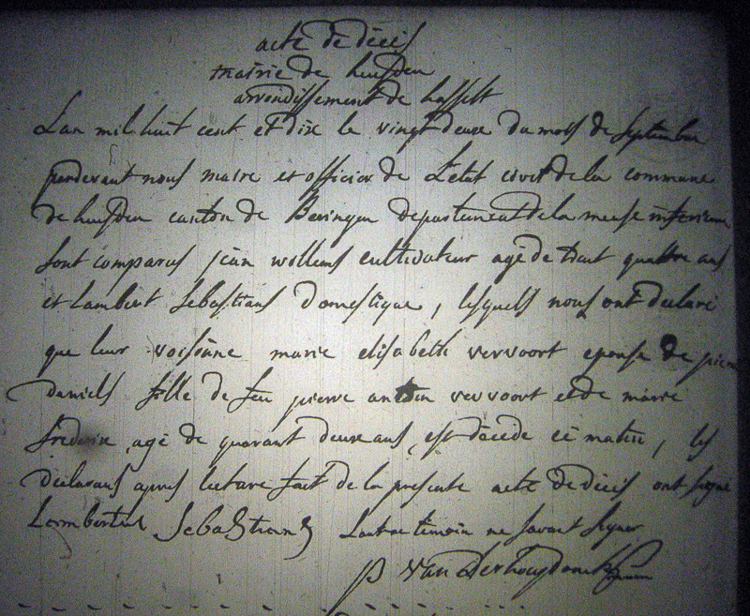 acte de décès
mairie de heusden
arrondissement de hasselt
Lan mil huit cent et dix le vingt deux du mois de Septembre
pardevant nous maire et officier de L'etat civil de la commune
de heusden canton de Beringen departement de la meuse inferieure
sont comparus jean willems cultivateur agé de trant quattre ans
et Lambert Sebastians domestique, lesquels nous ont déclaré
que leur voisinne marie elisabeth vervoort epouse de pierre
daniels fille de feu pierre anton vervoort et de marie
agé de quarant deux ans, est décédé cé matin, les
déclarans apres lecture fait de la presente acte de décès ont signé
Lambertus Sebastians Lautre témoin ne savait signer
p van der